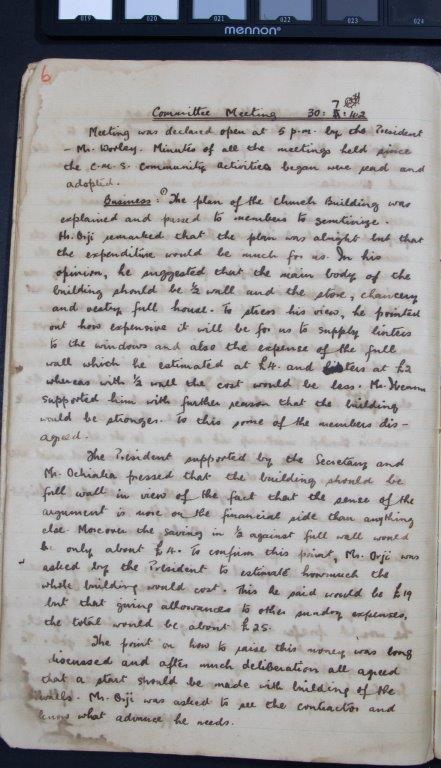 019 020 021 022 023 024
mennon
6
Committee Meeting 30: 7: 42
Meeting was declared open at 5 p.m. by the President
- Mr. Worley. Minutes of all the meetings held since
the C.M.S. Community activities began were read and
adopted.
Business: ① The plan of the Church Building was
explained and passed to members to scrutinize.
Mr. Orji remarked that the plan was alright but that
the expenditure would be much for us. In his
opinion, he suggested that the main body of the
building should be ½ wall and the store, chancery
and vestry full house. To stress his view, he pointed
out how expensive it will be for us to supply linters
to the windows and also the expense of the full
wall which he estimated at £4. and linters at £2
whereas with ½ wall the cost would be less. Mr.
supported him with further reason that the building
would be stronger. To this some of the members dis-
agreed.
The President supported by the Secretary and
Mr. Ochialia pressed that the building should be
full wall in view of the fact that the sense of the
argument is more on the financial side than anything
else. Moreover the savings in ½ against full wall would
be only about £4. To confirm this point, Mr. Orji was
asked by the President to estimate howmuch the
whole building would cost. This he said would be £19
but that giving allowances to other sundry expenses,
the total would be about £25.
The point on how to raise this money was long
discussed and after much deliberation all agreed
that a start should be made with building of the
walls. Mr. Orji was asked to see the contractor and
know what advance he needs.